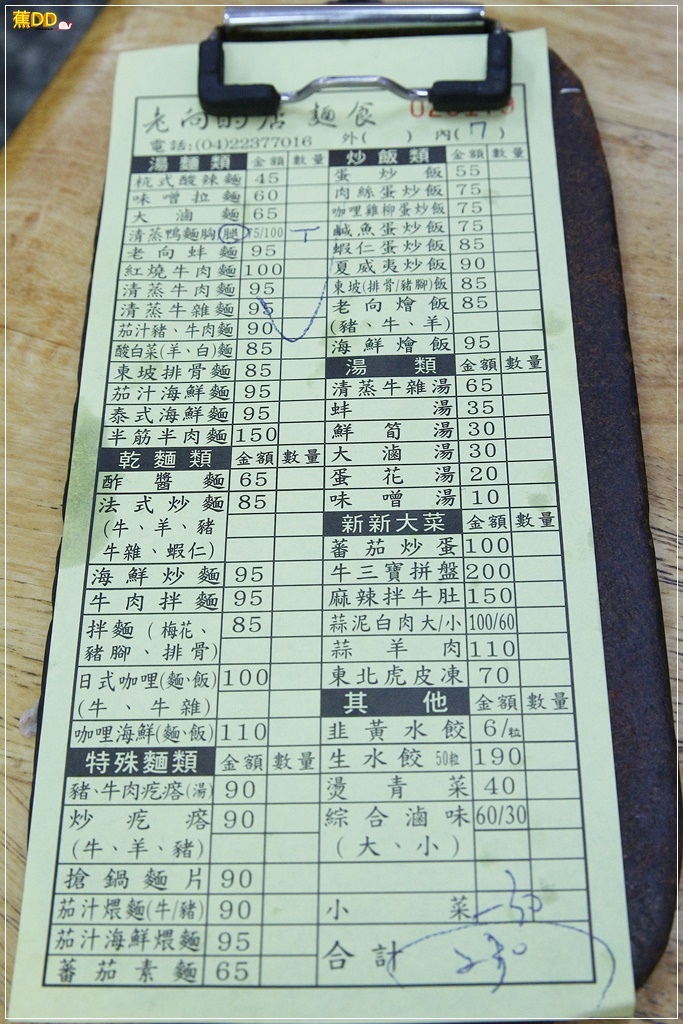 蕉DD
老向的店 麵食
電話:(04)22377016 外( ) 內(7)
湯麵類 金額 數量
杭式酸辣麵 45
味噌拉麵 60
大滷麵 65
清蒸鴨麵胸腿 75/100 T
老向蚌麵 95
紅燒牛肉麵 100
清蒸牛肉麵 95
清蒸牛雜麵 95
茄汁豬、牛肉麵 90
酸白菜(羊、白)麵 85
東坡排骨麵 85
茄汁海鮮麵 95
泰式海鮮麵 95
半筋半肉麵 150
乾麵類 金額 數量
酢醬麵 65
法式炒麵 85
(牛、羊、豬
牛雜、蝦仁)
海鮮炒麵 95
牛肉拌麵 95
拌麵(梅花、 85
豬腳、排骨)
日式咖哩(麵、飯) 100
(牛、牛雜)
咖哩海鮮(麵、飯) 110
特殊麵類 金額 數量
豬、牛肉疙瘩(湯) 90
炒疙瘩 90
(牛、羊、豬)
搶鍋麵片 90
茄汁煨麵(牛/豬) 90
茄汁海鮮煨麵 95
蕃茄素麵 65
炒飯類 金額 數量
蛋炒飯 55
肉絲蛋炒飯 75
咖哩雞柳蛋炒飯 75
鹹魚蛋炒飯 75
蝦仁蛋炒飯 85
夏威夷炒飯 90
東坡(排骨/豬腳)飯 85
老向燴飯 85
(豬、牛、羊)
海鮮燴飯 95
湯類 金額 數量
清蒸牛雜湯 65
蚌湯 35
鮮筍湯 30
大滷湯 30
蛋花湯 20
味噌湯 10
新新大菜 金額 數量
蕃茄炒蛋 100
牛三寶拼盤 200
麻辣拌牛肚 150
蒜泥白肉大/小 100/60
蒜羊肉 110
東北虎皮凍 70
其他 金額 數量
韭黃水餃 6/粒
生水餃50粒 190
燙青菜 40
綜合滷味 60/30
(大、小)
小菜 30
合計 230